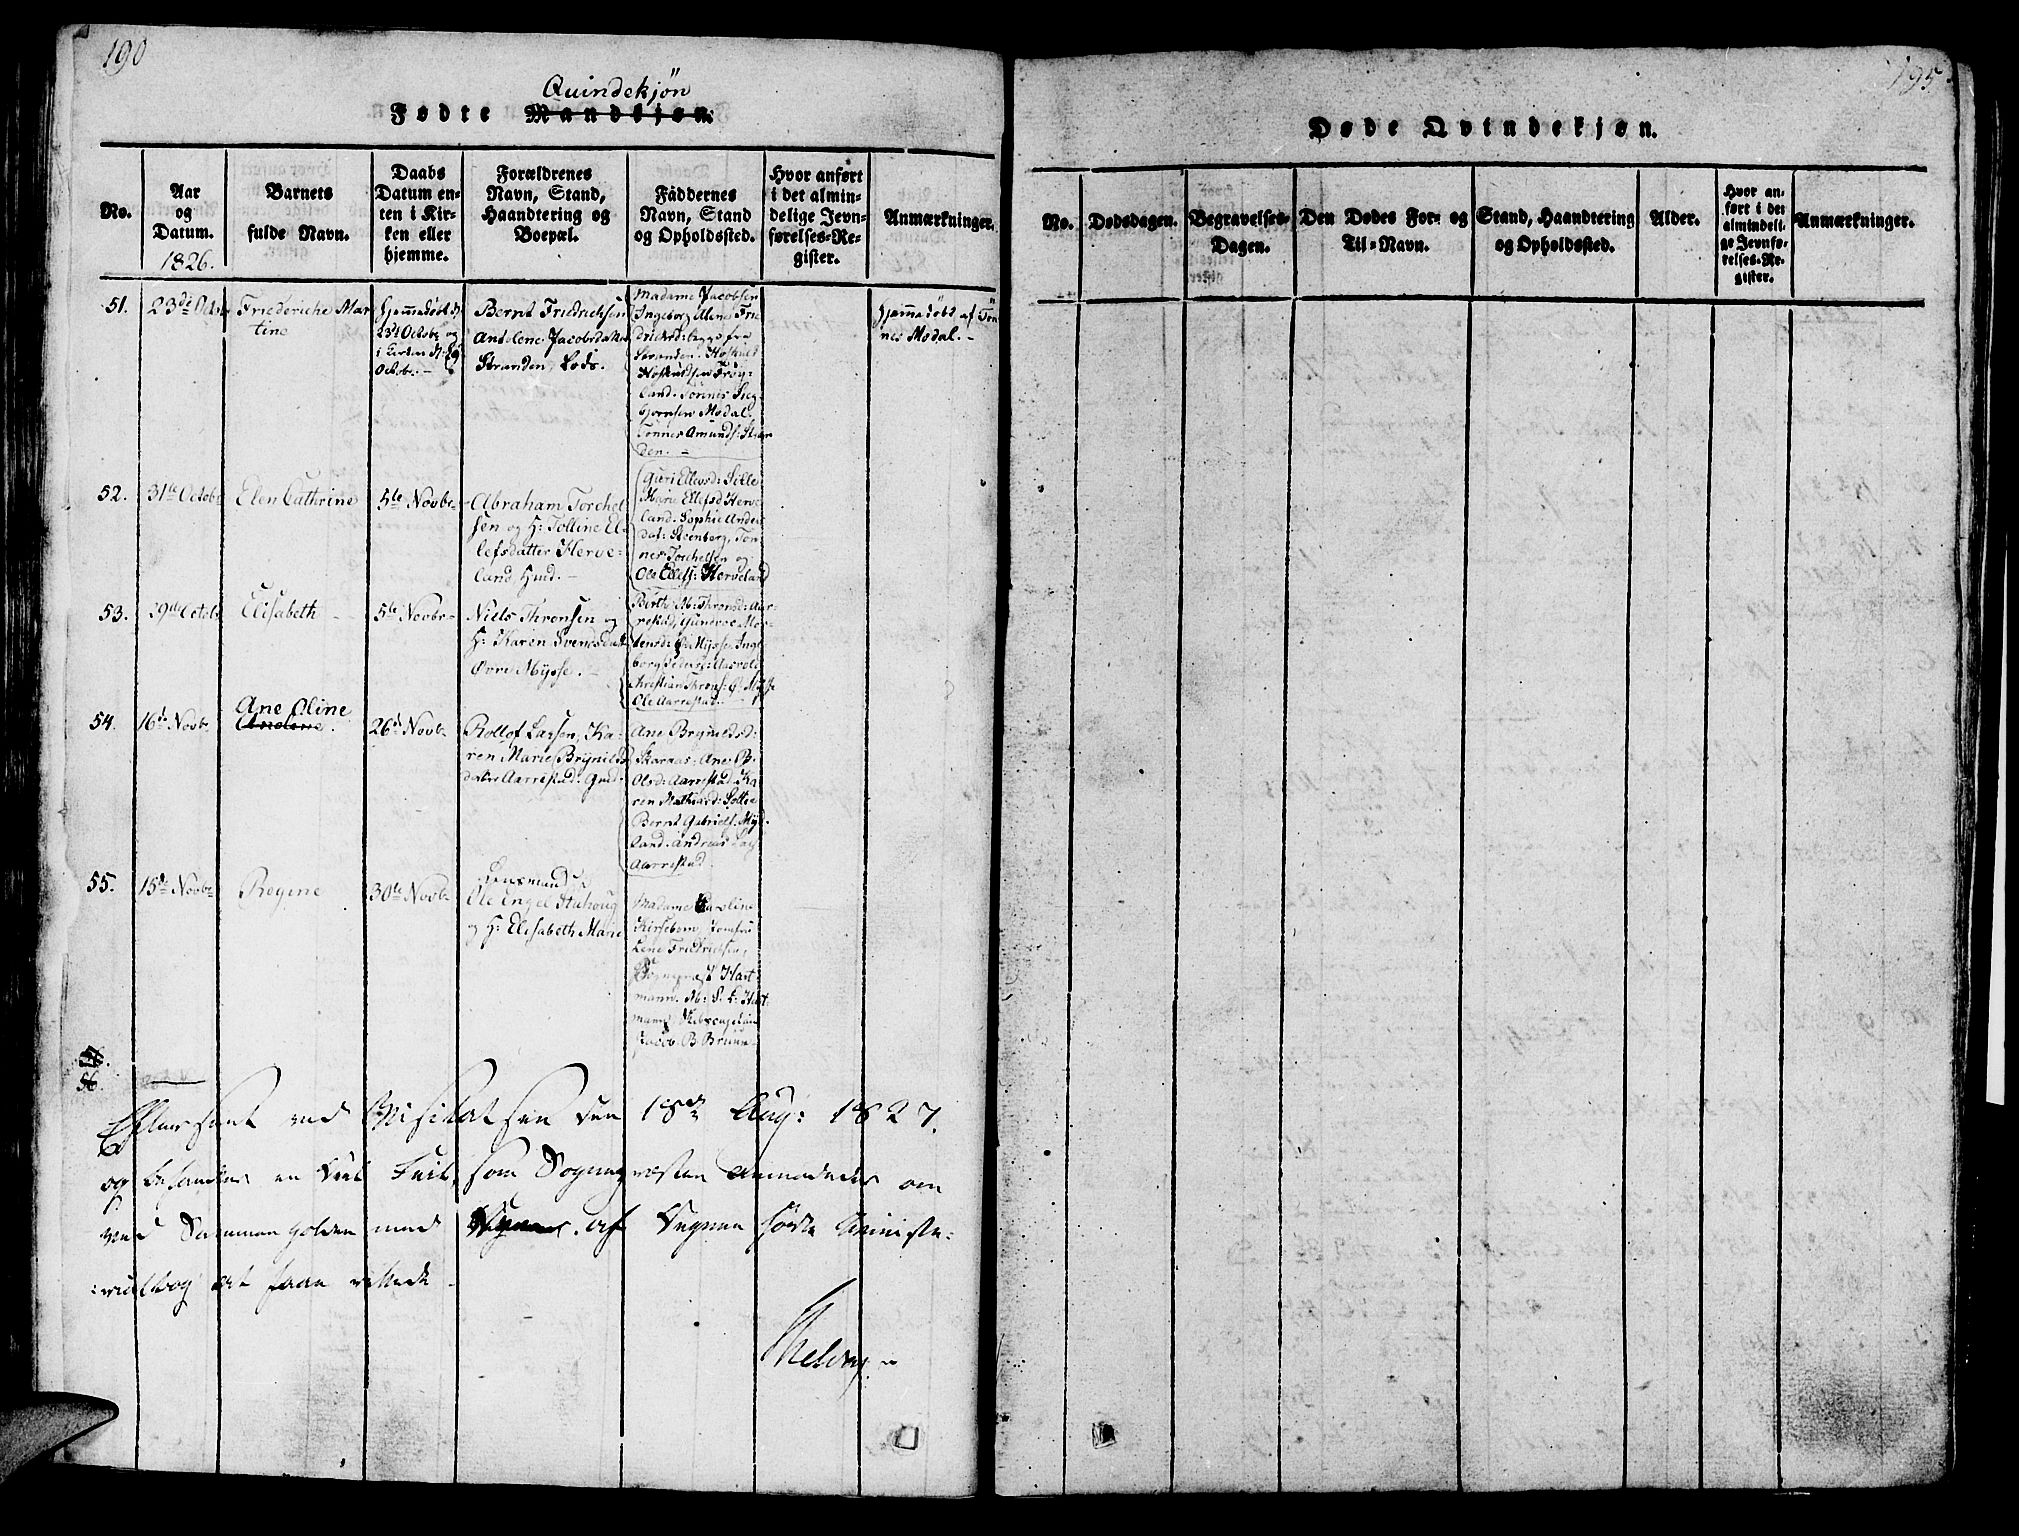 190
Quindekjön
Fødte Mandkjøn.
No.
Aar
og
Datum.
1826.
Barnets
fulde Navn.
Daabs
Datum en-
ten i Kir-
ken eller
hjemme.
Forældrenes
Navn, Stand,
Haandtering og
Boepæl.
Fåddernes
Navn, Stand
og Opholdssted.
Hvor anført
i det almin-
delige Jevn-
førelses-Re-
gister.
Anmærkninger.
51.
23de Octbr
Friederiche Mar
tine
Hjemmedöbt d:
23de Octobr og
i Kirken d: 29
Octobr. –
Bernt Friedrichsen
Andelene Jacobsdatter
Stranden, Lods.
Madame Jacobsen
Ingeborg Alene Frie
drichsd: begge fra
Stranden. Hoskuld
Hoskuldsen Fröy-
land. Tönnes Sieg
björnsen Modal.
Tönnes Amunds: Stran
den. –
Hjemmedöbt af Tön
nes Modal. –
52.
31te Octobr
Elen Cathrine
5te Novbr.
Abraham Torchel
sen og H: Tolline El-
lefsdatter Herve-
land, Gmd. –
Guri Ellevsd: Sille
Marie Ellefsd Herve
land. Sophie Anders
dat: Steenberg, Ton
nes Torchelsen og
Ole Ellefs: Herveland
53.
29de Octobr
Elisabeth –
5te Novbr.
Niels Thronsen og
H: Karen Svensdatt
Övre Mÿsse. –
Berthe M: Thronsd: Aar
restad, Gunvor Mor-
tensd: Ö: Mÿsse, Inge
borg Peders: Aasvold
Christian Throns: Ö: Mÿsse
Ole Aarrestad. –
54.
16de Novbr.
Ane Oline
Anelene.
26de Novbr
Rollof Larsen, Ka-
ren Marie Brÿnilds
datter Aarrestad. Gmd:
Ane Brynildsd:
Skaraas. Ane B.
Olsd: Aarrestad. Ka
ren Mathiasd: Sollie
Bernt Gabriels: Mÿd-
land. Andreas Lars
Aarrestad.
55.
15de Novbr
Regine
30te Novbr
Lensmand
Ole Engel Stuhoug
og H: Elisabeth Marie
Madame Caroline
Kirsebom, Jomfru
Lene Friedrichsen,
Sognepræst Hart
mann. M: S. L: Hart
mann,
Jacob B. Bruun
56
Efterseet ved Visitatsen den 18de Aug: 1827.
og befandtes en Deel Feil, som Sognepræsten anmodedes om
ved Sammenholden med af Degnen förte Ministe-
rialbog at faae rettede –
195
Døde Qvindekjøn.
No.
Dødsdagen.
Begravelses-
Dagen.
Den Dødes For- og
Til-Navn.
Stand, Haandtering
og Opholdssted.
Alder.
Hvor an-
ført i det
almindeli-
ge Jevnfø-
relses-Re-
gister.
Anmærkninger.